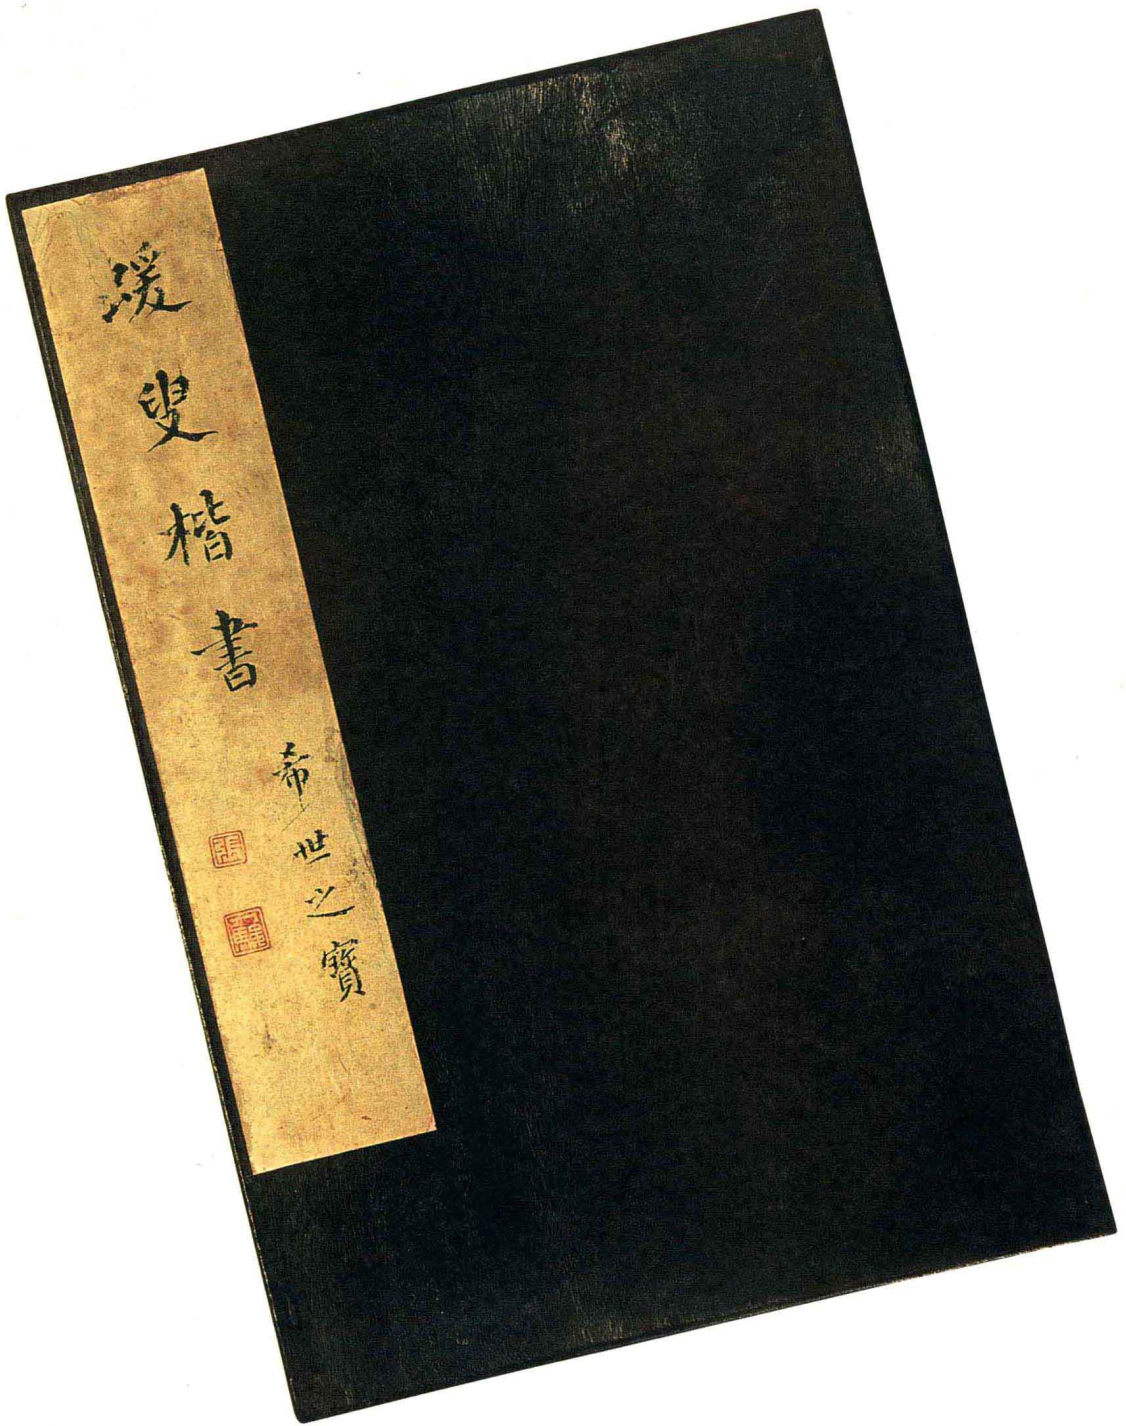 蝯叟楷書
希世之寶
張